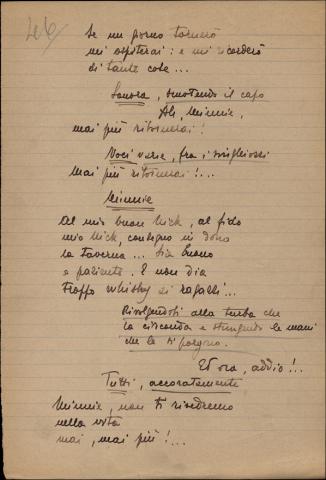 Se un giorno tornerò
mi ospiterai: e mi ricorderò
di tante cose...
Sonora, scotendo il capo
Ah, Minnie,
mai più ritornerai!
Voci varie, fra i singhiozzi
Mai più ritornerai!...
Minnie
Al mio buon Nick, al fido
mio Nick, consegno in dono
la taverna... Sia buono
e paziente. E non dia
troppo whisky ai ragazzi...
Rivolgendosi alla turba che
la circonda e stringendo le mani
che le si porgono.
Ed ora, addio!...
Tutti, accoratamente
Minnie, non ti rivedremo
nella vita
mai, mai più!...